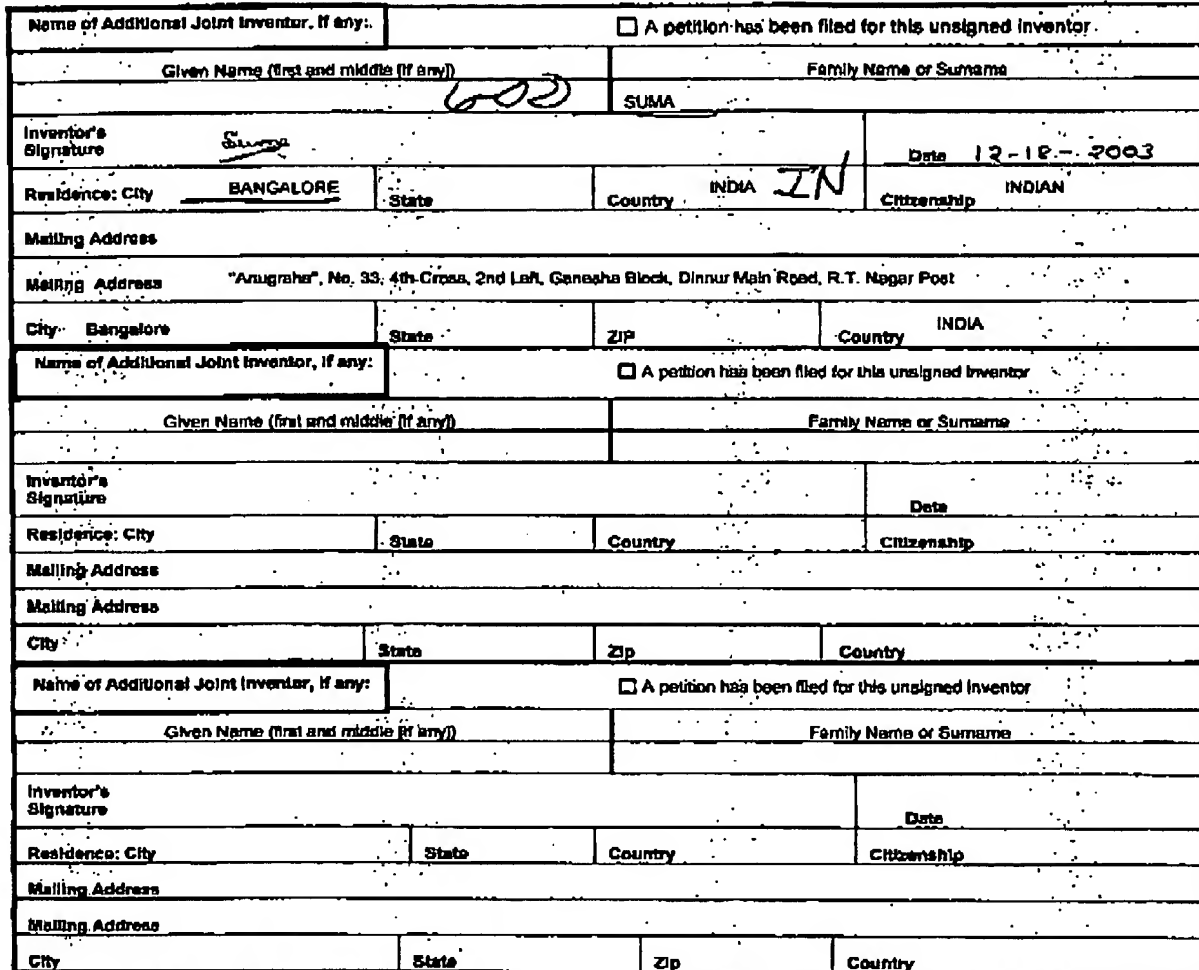 Name of Additional Joint Inventor, if any: ☐ A petition has been filed for this unsigned inventor
Given Name (first and middle [if any]) Family Name or Surname
603 SUMA
Inventor's Signature Suma Date 12-18-2003
Residence: City BANGALORE State Country INDIA IN Citizenship INDIAN
Mailing Address
Mailing Address "Anugraha", No. 33, 4th Cross, 2nd Left, Ganesha Block, Dinnur Main Road, R.T. Nagar Post
City Bangalore State ZIP Country INDIA
Name of Additional Joint Inventor, if any: ☐ A petition has been filed for this unsigned inventor
Given Name (first and middle [if any]) Family Name or Surname
Inventor's Signature Date
Residence: City State Country Citizenship
Mailing Address
Mailing Address
City State Zip Country
Name of Additional Joint Inventor, if any: ☐ A petition has been filed for this unsigned inventor
Given Name (first and middle [if any]) Family Name or Surname
Inventor's Signature Date
Residence: City State Country Citizenship
Mailing Address
Mailing Address
City State Zip Country